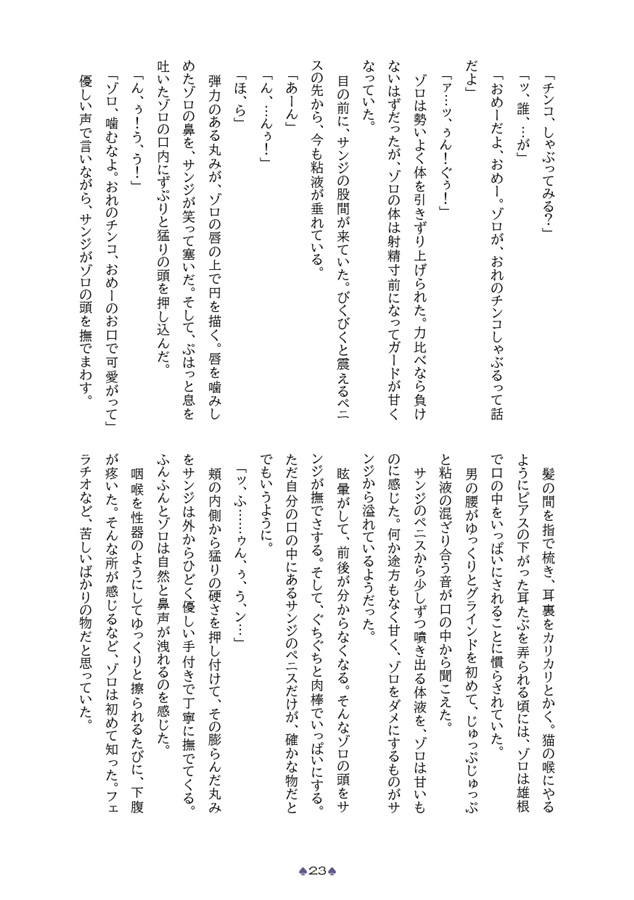 「チンコ、しゃぶってみる？」
「ッ、誰、…が」
「おめーだよ、おめー。ゾロが、おれのチンコしゃぶるって話
だよ」
「ァ…ッ、ぅん！ぐぅ！」
ゾロは勢いよく体を引きずり上げられた。力比べなら負け
ないはずだったが、ゾロの体は射精寸前になってガードが甘く
なっていた。
目の前に、サンジの股間が来ていた。びくびくと震えるペニ
スの先から、今も粘液が垂れている。
「あーん」
「ん、…んぅ！」
「ほ、ら」
弾力のある丸みが、ゾロの唇の上で円を描く。唇を噛みし
めたゾロの鼻を、サンジが笑って塞いだ。そして、ぷはっと息を
吐いたゾロの口内にずぷりと猛りの頭を押し込んだ。
「ん、ぅ！う、う！」
「ゾロ、噛むなよ。おれのチンコ、おめーのお口で可愛がって」
優しい声で言いながら、サンジがゾロの頭を撫でまわす。
髪の間を指で梳き、耳裏をカリカリとかく。猫の喉にやる
ようにピアスの下がった耳たぶを弄られる頃には、ゾロは雄根
で口の中をいっぱいにされることに慣らされていた。
男の腰がゆっくりとグラインドを初めて、じゅっぷじゅっぷ
と粘液の混ざり合う音が口の中から聞こえた。
サンジのペニスから少しずつ噴き出る体液を、ゾロは甘いも
のに感じた。何か途方もなく甘く、ゾロをダメにするものがサ
ンジから溢れているようだった。
眩暈がして、前後が分からなくなる。そんなゾロの頭をサ
ンジが撫でさする。そして、ぐちぐちと肉棒でいっぱいにする。
ただ自分の口の中にあるサンジのペニスだけが、確かな物だと
でもいうように。
「ッ、ふ……ゥん、ぅ、う、ン…」
頬の内側から猛りの硬さを押し付けて、その膨らんだ丸み
をサンジは外からひどく優しい手付きで丁寧に撫でてくる。
ふんふんとゾロは自然と鼻声が洩れるのを感じた。
咽喉を性器のようにしてゆっくりと擦られるたびに、下腹
が疼いた。そんな所が感じるなど、ゾロは初めて知った。フェ
ラチオなど、苦しいばかりの物だと思っていた。
♠23♠